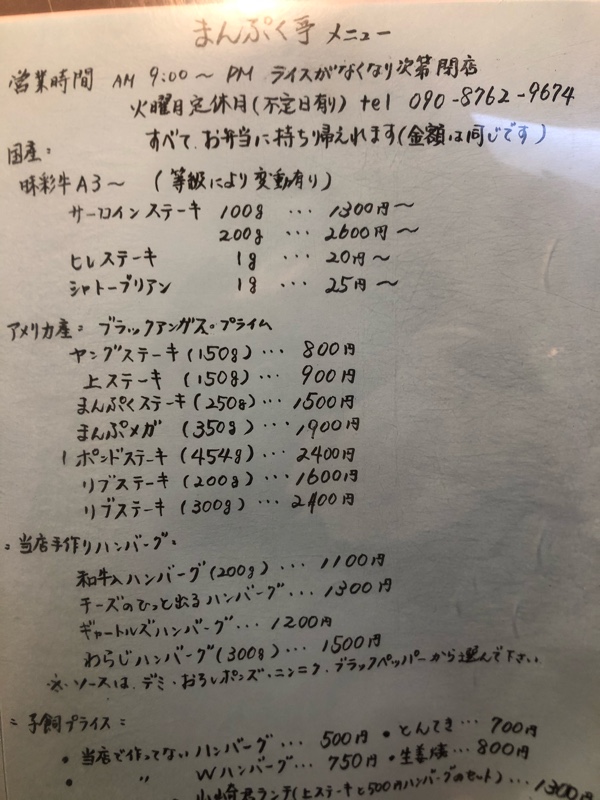 まんぷく亭 メニュー
営業時間 AM 9:00〜 PM ライスがなくなり次第閉店
火曜日定休日(不定日有り) tel 090-8762-9674
すべて、お弁当に持ち帰えれます(金額は同じです)
国産:
味彩牛A3〜 (等級により変動有り)
サーロインステーキ 100g … 1300円〜
200g … 2600円〜
ヒレステーキ 1g … 20円〜
シャトーブリアン 1g … 25円〜
アメリカ産: ブラックアンガス・プライム
ヤングステーキ(150g)… 800円
上ステーキ (150g)… 900円
まんぷくステーキ(250g)… 1500円
まんぷメガ (350g)… 1900円
1ポンドステーキ(454g)… 2400円
リブステーキ (200g)… 1600円
リブステーキ (300g)… 2400円
= 当店手作りハンバーグ:
和牛入ハンバーグ(200g)… 1100円
チーズのひっと出るハンバーグ… 1300円
ギャートルズハンバーグ… 1200円
わらじハンバーグ(300g)… 1500円
※ソースは、デミ・おろしポンズ・ニンニク、ブラックペッパーから選んで下さい
= 子飼プライス:
・当店で作ってないハンバーグ… 500円 ・とんてき… 700円
・ 〃 Wハンバーグ… 750円 ・生姜焼… 800円
山崎君ランチ(上ステーキと500円ハンバーグのセット)… 1300円